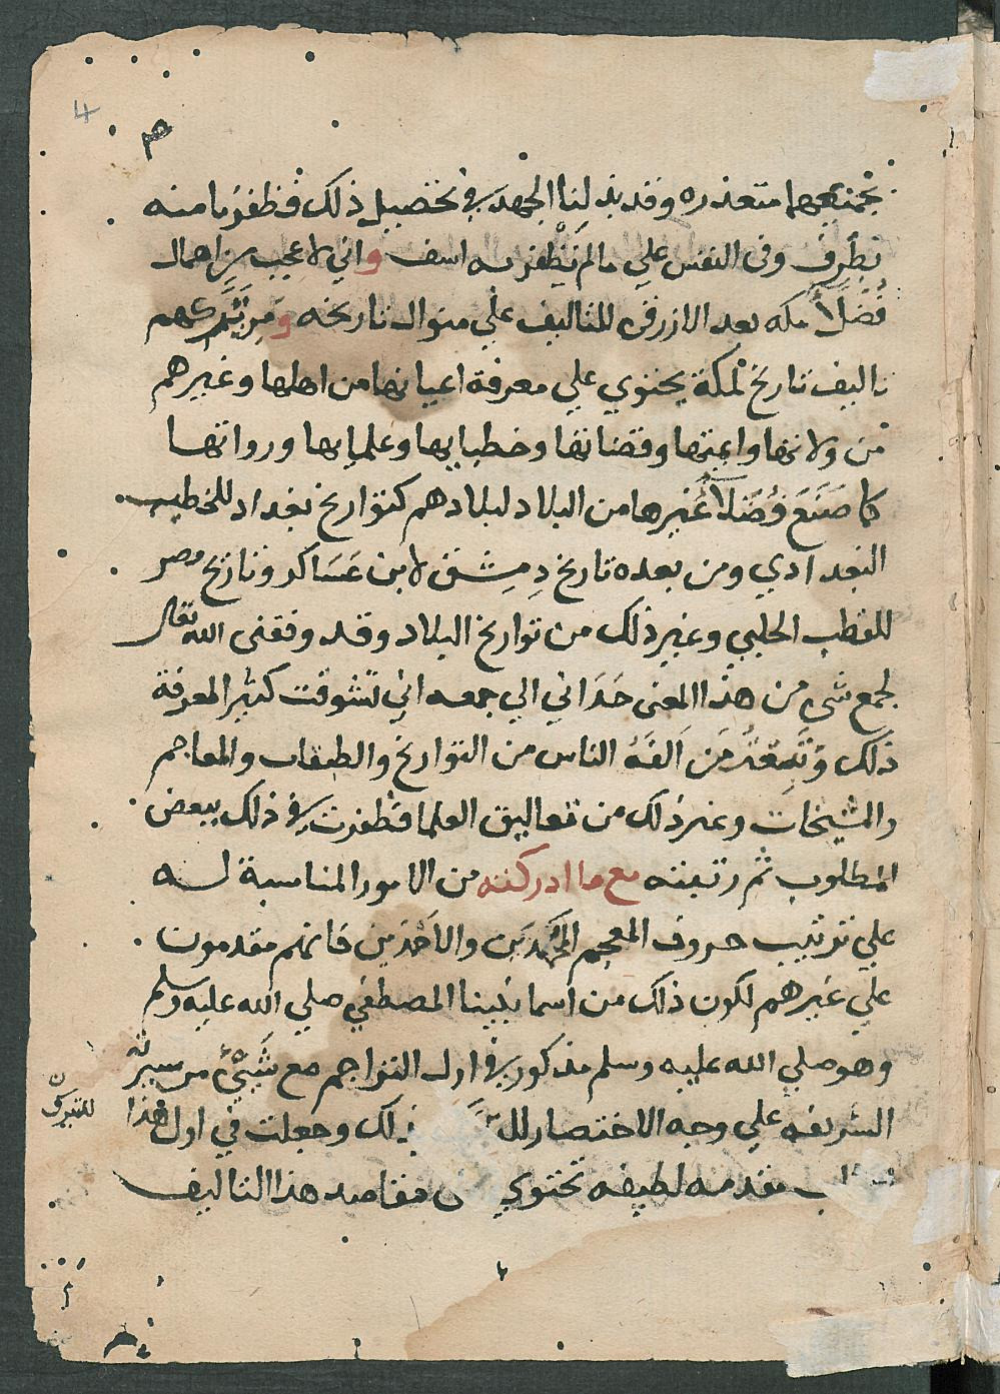 بجميعها متعذره وقد بذلنا الجهد في تحصيل ذلك فظفرنا منه
بطرف وفى النفس علي مالم نظفر به اسف واني لاعجب من اهمال
فضلاء مكه بعد الازرقى للتاليف علي منوال تاريخه ومن تركهم
تاليف تاريخ لمكة يحتوي علي معرفة اعيانها من اهلها وغيرهم
من ولاتها وايمتها وقضاتها وخطبايها وعلمايها ورواتها
كما صنع فضلاء غيرها من البلاد لبلادهم كتواريخ بغداد للخطيب
البغدادي ومن بعده تاريخ دمشق لابن عساكر وتاريخ مصر
للقطب الحلبي وغير ذلك من تواريخ البلاد وقد وفقنى الله تعالى
لجمع شي من هذا المعنى حداني الي جمعه اني تشوقت كثيرا لمعرفة
ذلك من الفه الناس من التواريخ والطبقات والمعاجم
والمشيخات وغير ذلك من تعاليق العلما فظفرت في ذلك ببعض
المطلوب ثم رتبته مع ما ادركته من الامور المناسبة له
علي ترتيب حروف المعجم المحمدين والاحمدين فانهم مقدمون
علي غيرهم لكون ذلك من اسما نبينا المصطفي صلي الله عليه وسلم
وهو صلي الله عليه وسلم مذكور في اول التراجم مع شيء من سيرته
الشريفه علي وجه الاختصار ذلك وجعلت في اول هذا
للتبرك
مقدمه لطيفه تحتوي مقاصد هذا التاليف